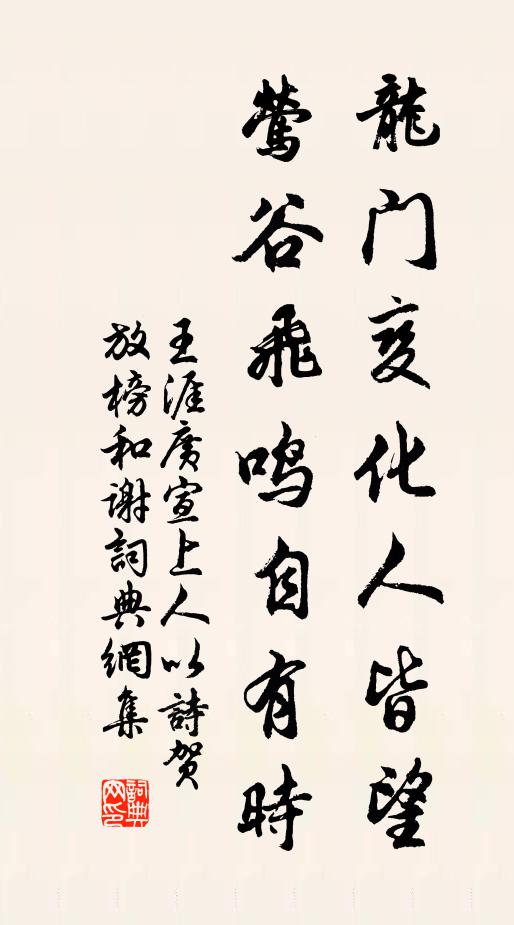 龍门变化人皆望
鶯谷飛鸣自有時
王涯廣宣上人以詩賀
放榜和谢詞典網集
詞典
网印